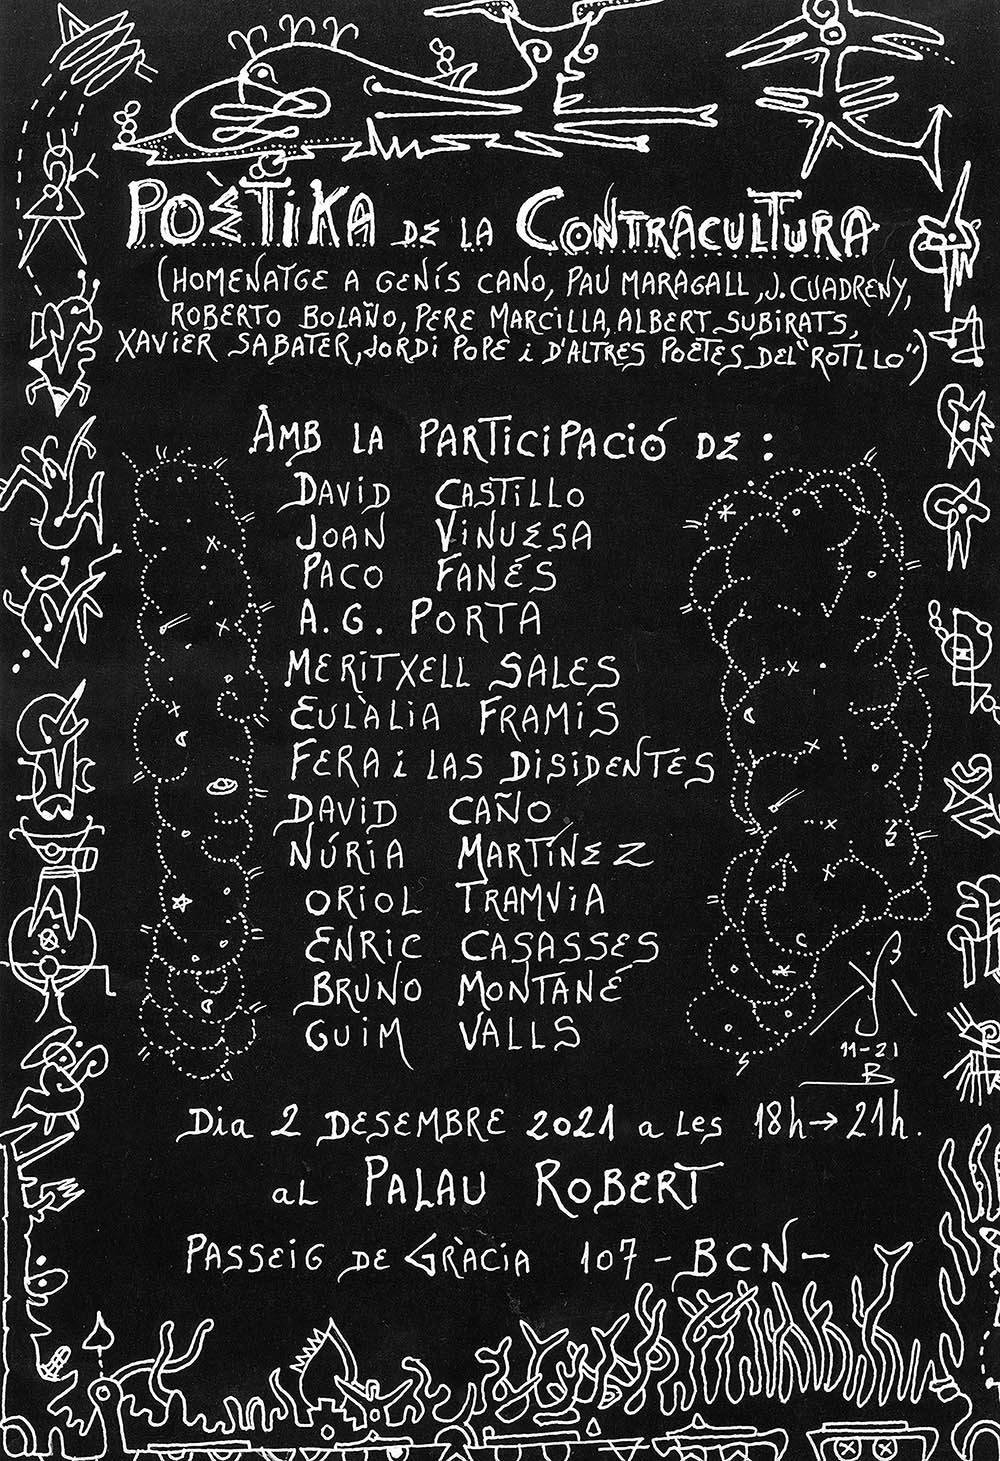 POÈTIKA DE LA CONTRACULTURA
(HOMENATGE A GENÍS CANO, PAU MARAGALL, J. CUADRENY,
ROBERTO BOLAÑO, PERE MARCILLA, ALBERT SUBIRATS,
XAVIER SABATER, JORDI POPE i D'ALTRES POETES DEL "ROTLLO")
AMB LA PARTICIPACIÓ DE:
DAVID CASTILLO
JOAN VINUESA
PACO FANÉS
A. G. PORTA
MERITXELL SALES
EULÀLIA FRAMIS
FERA i LAS DISIDENTES
DAVID CAÑO
NÚRIA MARTÍNEZ
ORIOL TRAMVIA
ENRIC CASASSES
BRUNO MONTANÉ
GUIM VALLS
11-21
B
Dia 2 DESEMBRE 2021 a LES 18h→21h.
aL PALAU ROBERT
PASSEIG DE GRÀCIA 107 - BCN -